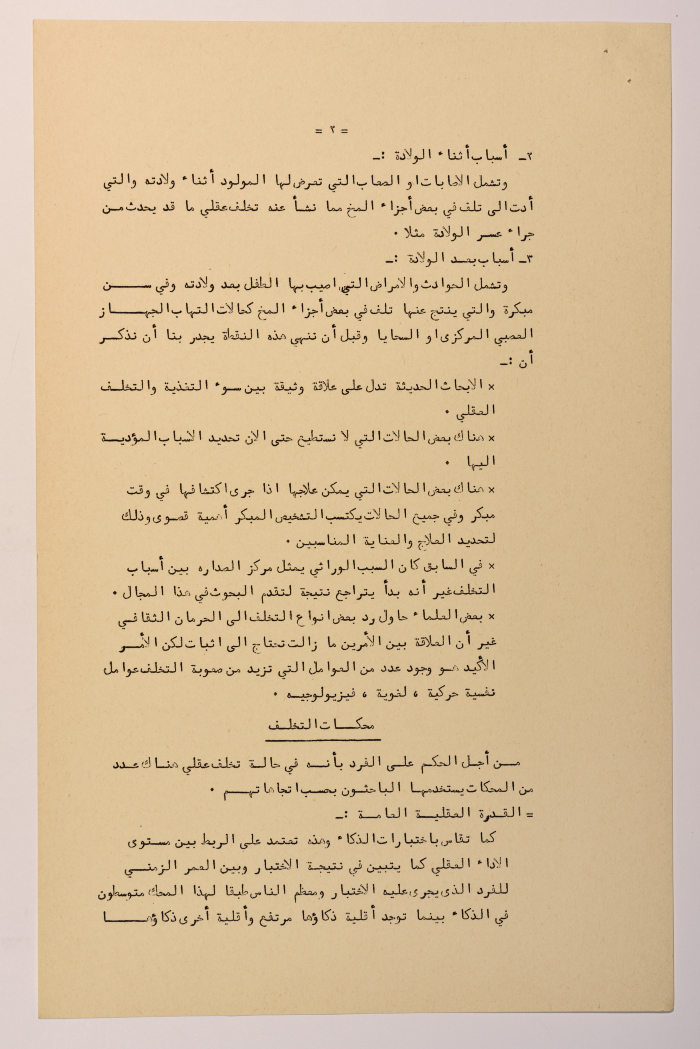 = ٢ =
٢ـ أسباب أثناء الولادة :ـ
وتشمل الاصابات او الصعاب التي تعرض لها المولود أثناء ولادته والتي
أدت الى تلف في بعض أجزاء المخ مما نشأ عنه تخلف عقلي ما قد يحدث مـن
جراء عسر الولادة مثلا .
٣ـ أسباب بعـد الولادة :ـ
وتشمل الحوادث والامراض التي اصيب بها الطفل بعد ولادته وفي ســـن
مبكرة والتي ينتج عنها تلف في بعض أجزاء المخ كحالات التهاب الجهـــاز
العصبي المركزى او السحايا وقبل أن ننهي هذه النقطة يجدر بنا أن نذكــر
أن :ـ
× الابحاث الحديثة تدل على علاقة وثيقة بين سـوء التغذية والتخلـف
العقلي .
× هناك بعض الحالات التي لا نستطيع حتى الان تحديد الاسباب المؤديــة
اليها .
× هناك بعض الحالات التي يمكن علاجها اذا جرى اكتشافها في وقت
مبكر وفي جميع الحالات يكتسب التشخيص المبكر أهمية قصوى وذلك
لتحديد العلاج والعناية المناسبين .
× في السابق كان السبب الوراثي يمثل مركز الصداره بين أسباب
التخلف غير أنه بدأ يتراجع نتيجة لتقدم البحوث في هذا المجال .
× بعض العلماء حاول رد بعض انواع التخلف الى الحرمان الثقافـي
غير أن العلاقة بين الأمرين ما زالت تحتاج الى اثبات لكن الأمــر
الأكيد هـو وجود عدد من العوامل التي تزيد من صعوبة التخلف عوامل
نفسية حركية ، لغوية ، فيزيولوجيـه .
محكــات التخلـف
مــن أجل الحكم على الفرد بأنــه في حالة تخلف عقلي هناك عـدد
من المحكات يستخدمهـا الباحثـون بحسب اتجاهاتهــم .
= القدرة العقليـة العامـة :ـ
كما تقاس باختبارات الذكاء وهذه تعتمد على الربط بين مستوى
الاداء العقلي كما يتبين في نتيجـة الاختبار وبين العمر الزمنـــي
للفرد الذى يجرى عليه الاختبار ومعظم الناس طبقا لهذا المحك متوسطون
في الذكاء بينما توجد أقلية ذكاؤها مرتفع وأقلية أخرى ذكاؤهــــا